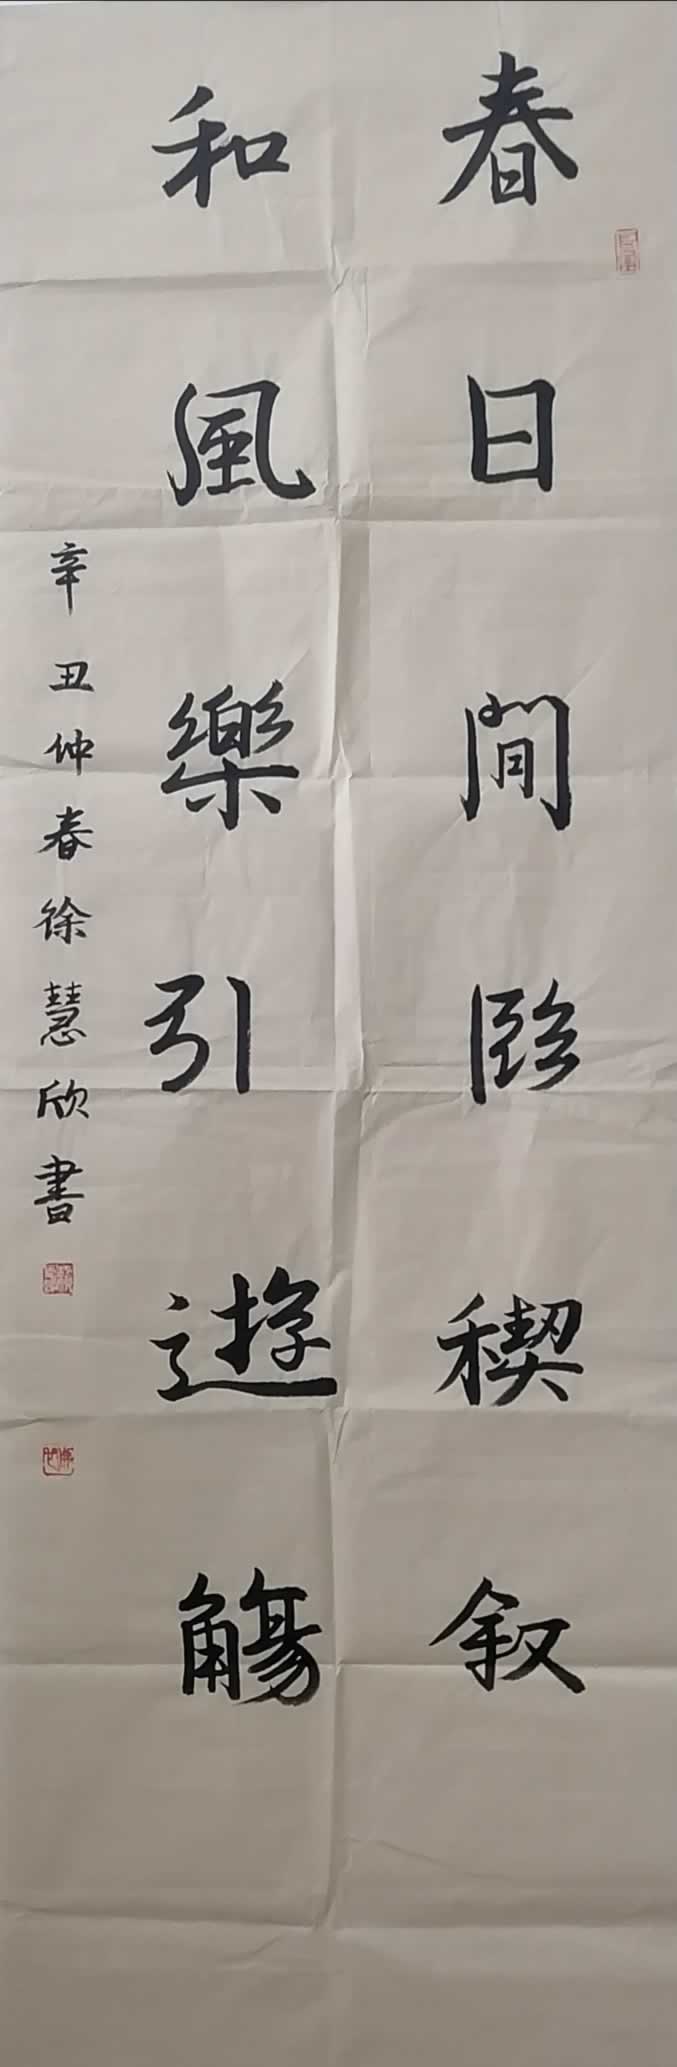 春日閒臨稧叙
和風樂引遊觴
辛丑仲春徐慧欣書